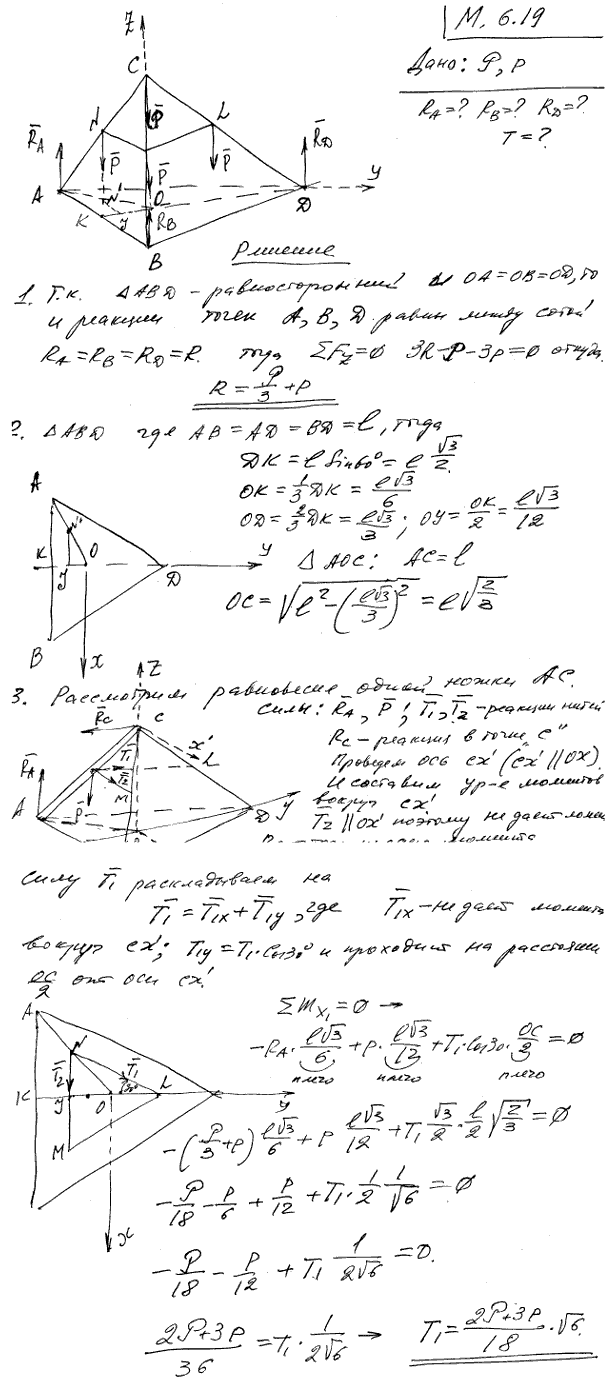 М. 6.19
Дано: P, p
R_A=? R_B=? R_D=?
T=?
Z
C
N
L
P̄
R̄_A
p̄
p̄
p̄
R̄_D
A
N'
O
y
D
K
y
R_B
B
Решение
1. Т.к. △ABD - равносторонний и OA=OB=OD, то
и реакции точек A, B, D равны между собой
R_A=R_B=R_D=R. тогда ΣF_z=0 3R-P-3p=0 откуда.
R=P/3+p
2. △ABD где AB=AD=BD=l, тогда
DK=l Sin60°=l √3/2.
OK=1/3 DK=l√3/6
OD=2/3 DK=l√3/3; OY=OK/2=l√3/12
△AOC: AC=l
OC=√(l²-(l√3/3)²)=l√(2/3)
A
N'
K
y
O
D
y
B
x
3. Рассмотрим равновесие одной ножки AC.
силы: R̄_A, P̄', T̄₁, T̄₂-реакции нитей
R_C-реакция в точке "C"
Проведем ось cx' (cx' || OX).
И составим ур-е моментов
вокруг cx'
T̄₂ || Ox' поэтому не дает момен
Z
R̄_C
C
x'
T̄₁
L
R̄_A
T̄₂
M
p̄
A
D
y
силу T̄₁ раскладываем на
T̄₁=T̄₁x+T̄₁y, где T̄₁x-не дает момента
вокруг cx'; T₁y=T₁·Cos30° и проходит на расстоянии
OC/2 от оси cx'.
Σm_x₁=0 →
-R_A·l√3/6+p·l√3/12+T₁·Cos30·OC/2=0
плечо плечо плечо
-(P/3+p)l√3/6+p l√3/12+T₁ √3/2·l/2√(2/3)=0
-P/18-p/6+p/12+T₁·1/2 1/√6=0
-P/18-p/12+T₁ 1/(2√6)=0.
(2P+3p)/36=T₁·1/(2√6) → T₁=(2P+3p)/18·√6.
A
N
T̄₂
T̄₁
30°
K
y
O
L
y
M
x